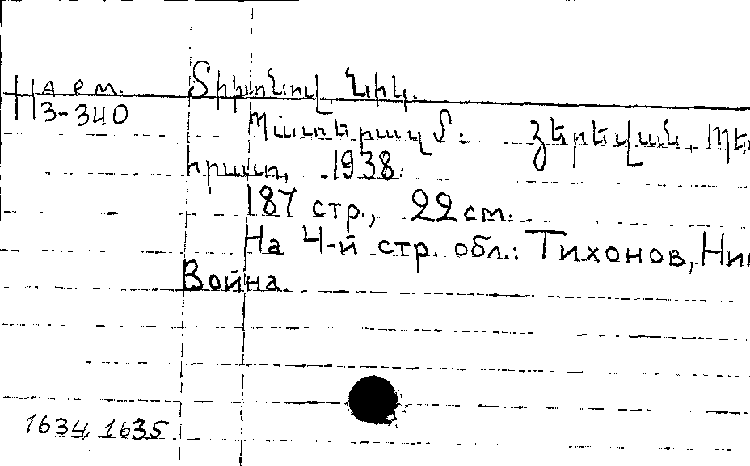 Տիխոնով Նիկ.
3-340
Պատերազմ. Յերեվան, Պե
հրատ, 1938.
187 стр., 22 см.
На 4-й стр. обл.: Тихонов, Ни
Война
1634, 1635